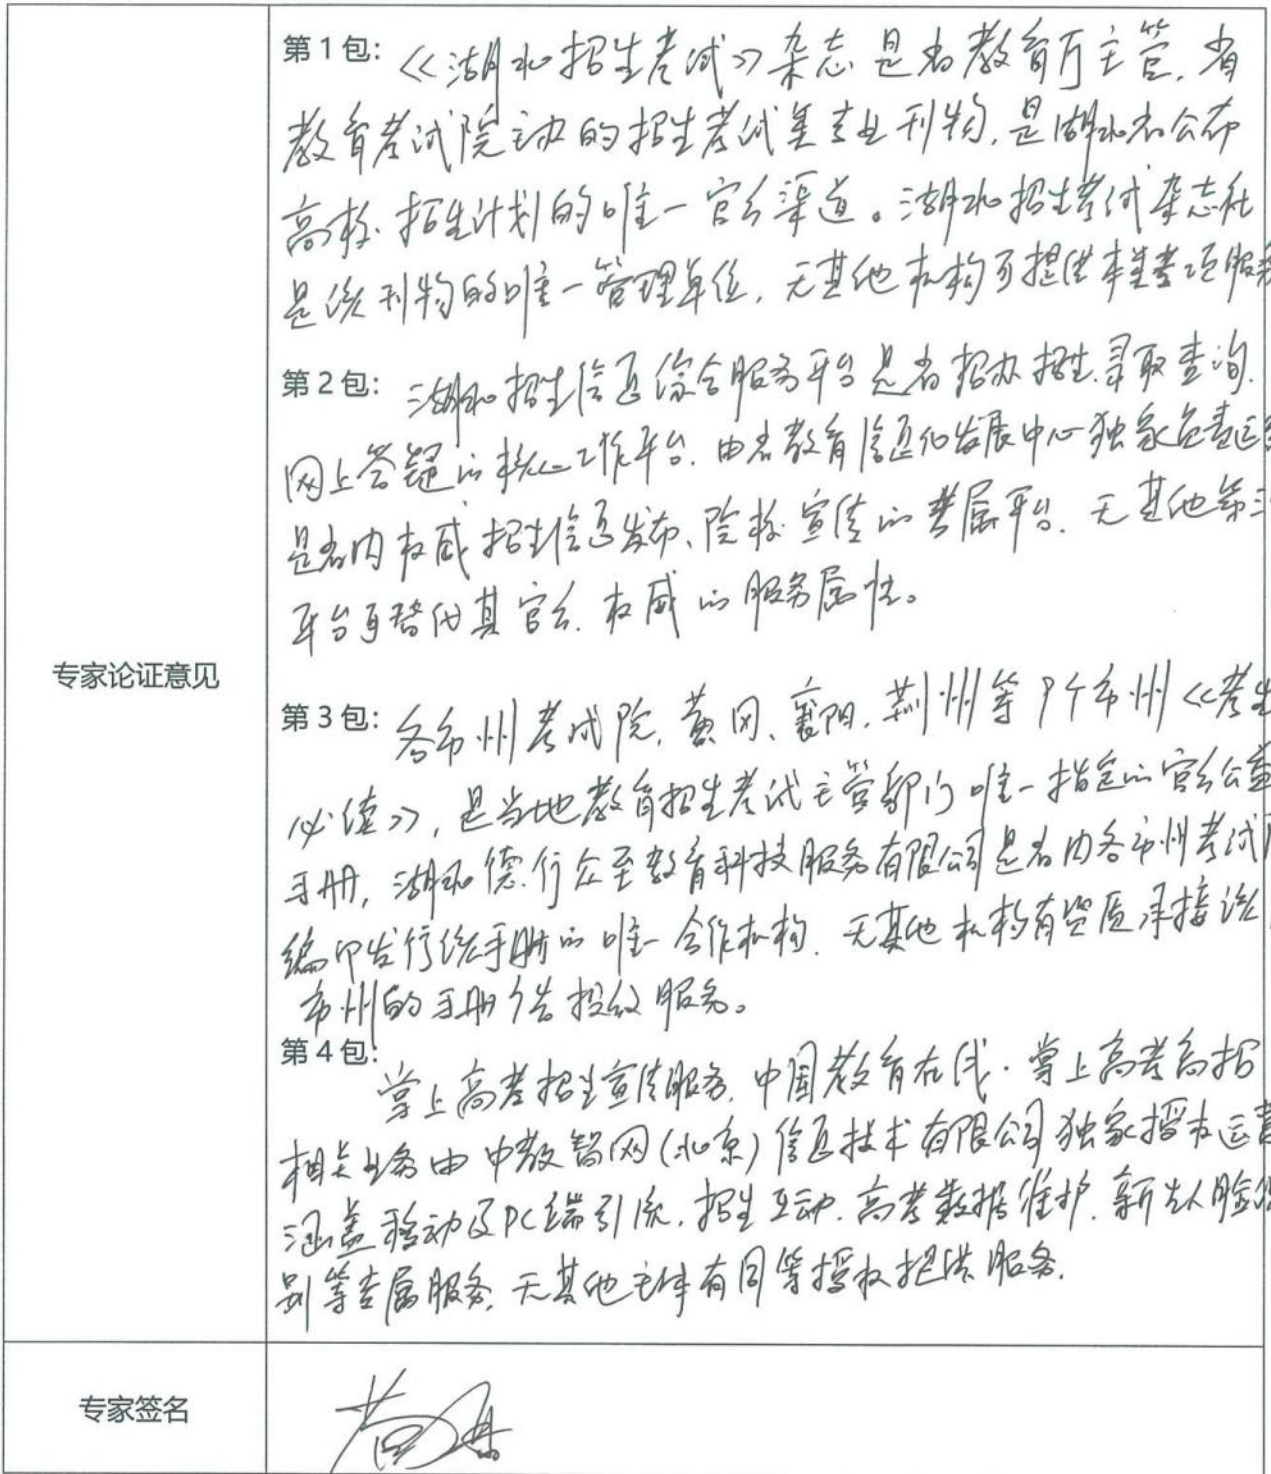 专家论证意见
第1包：《湖北招生考试》杂志是省教育厅主管，省
教育考试院主办的招生考试类专业刊物，是湖北省公布
高校招生计划的唯一官方渠道。湖北招生考试杂志社
是该刊物的唯一管理单位，无其他机构可提供本类专项服务
第2包：湖北招生信息综合服务平台是省招办招生.录取查询.
网上答疑的核心工作平台.由省教育信息化发展中心独家负责运营
是省内权威招生信息发布、院校宣传的专属平台.无其他第三
平台可替代其官方.权威的服务属性。
第3包：各市州考试院，黄冈、襄阳.荆州等9个市州《考生
必读》，是当地教育招生考试主管部门唯一指定的官方公益
手册，湖北德行众至教育科技服务有限公司是省内各市州考试院
编印发行该手册的唯一合作机构.无其他机构有资质承接该
市州的手册广告投放服务。
第4包：
掌上高考招生宣传服务.中国教育在线·掌上高考高招
相关业务由中教智网(北京)信息技术有限公司独家授权运营
涵盖移动及PC端引流.招生互动.高考数据维护.新生人脸识
别等专属服务.无其他主体有同等授权提供服务.
专家签名